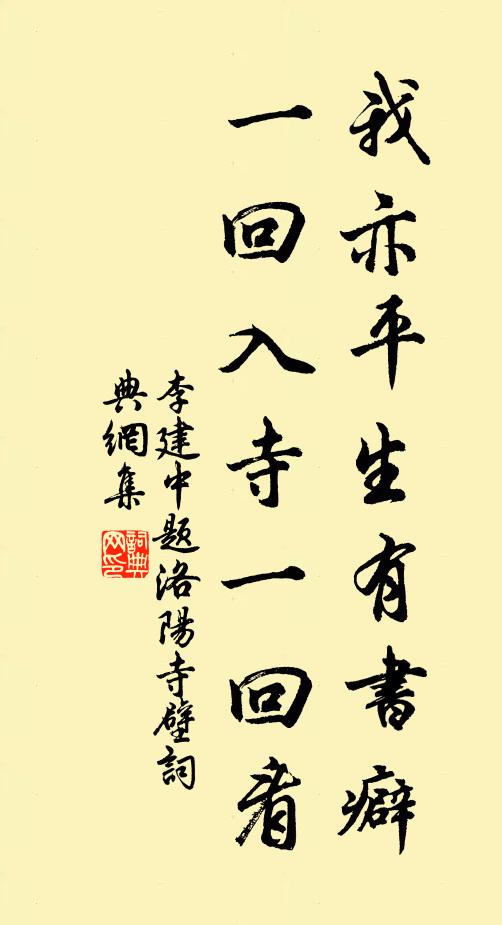 我亦平生有書癖
一回入寺一回看
李建中題洛陽寺壁詞
典網集
詞典
网印